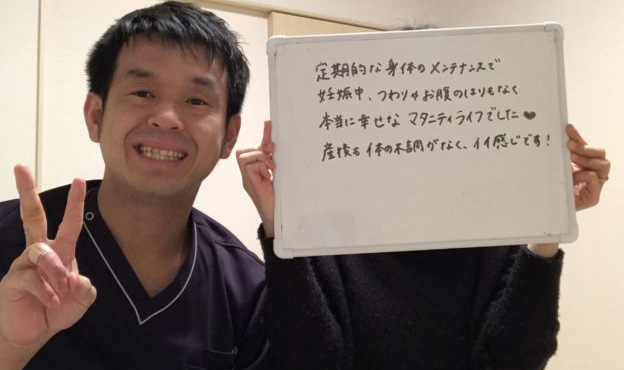 定期的な身体のメンテナンスで
妊娠中、つわりやお腹のはりもなく
本当に幸せなマタニティライフでした♥
産後も体の不調がなく、イイ感じです!